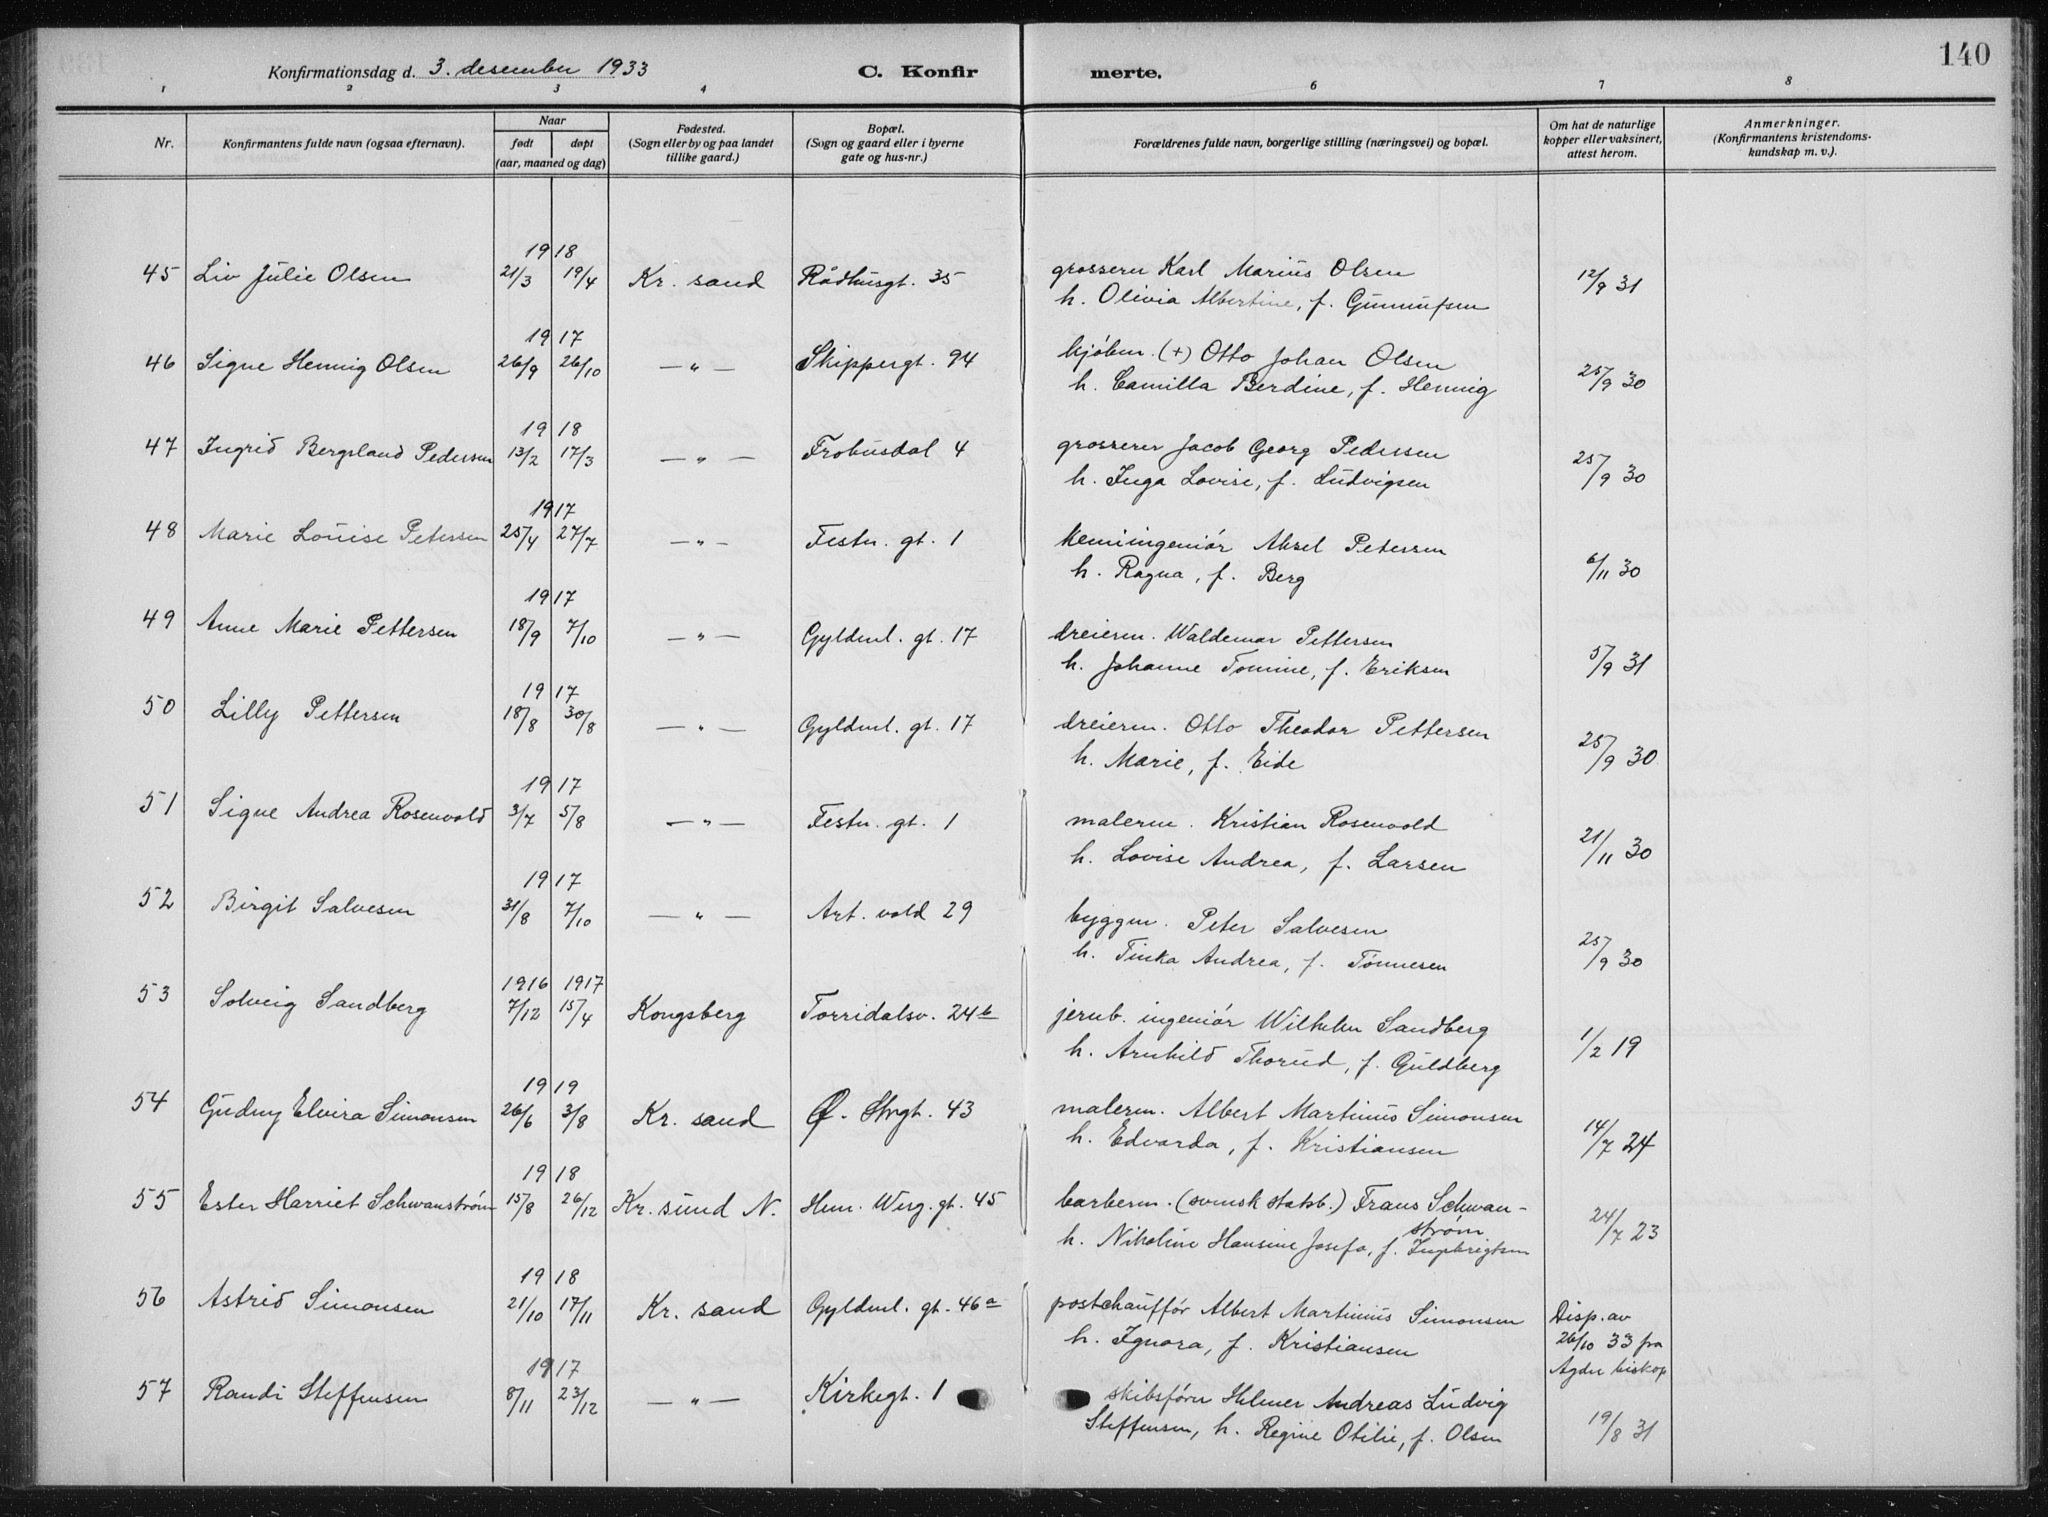 140
Konfirmationsdag d. 3. desember 1933 C. Konfir merte.
1 2 3 4 6 7 8
Nr. Konfirmantens fulde navn (ogsaa efternavn). Naar født døpt (aar, maaned og dag) Fødested. (Sogn eller by og paa landet tillike gaard.) Bopæl. (Sogn og gaard eller i byerne gate og hus-nr.) Forældrenes fulde navn, borgerlige stilling (næringsvei) og bopæl. Om hat de naturlige kopper eller vaksinert, attest herom. Anmerkninger. (Konfirmantens kristendoms-kundskap m. v.).
1918
45 Liv Julie Olsen 21/3 19/4 Kr. sand Rådhusgt. 35 grosserer Karl Marius Olsen 12/9 31
h. Olivia Albertine, f. Gunnufsen
1917
46 Signe Hennig Olsen 26/9 26/10 —"— Skippergt. 94 kjøbm. (+) Otto Johan Olsen 25/9 30
h. Camilla Berdine, f. Hennig
1918
47 Ingrid Bergsland Pedersen 13/2 17/3 —"— Frobusdal 4 grosserer Jacob Georg Pedersen 25/9 30
h. Inga Lovise, f. Ludvigsen
1917
48 Marie Louise Petersen 25/4 27/7 —"— Festn. gt. 1 kemiingeniør Aksel Petersen 6/11 30
h. Ragna, f. Berg
1917
49 Anne Marie Pettersen 18/9 7/10 —"— Gyldenl. gt. 17 dreierm. Waldemar Pettersen 5/9 31
h. Johanne Tomine, f. Eriksen
1917
50 Lilly Pettersen 18/8 30/8 —"— Gyldenl. gt. 17 dreierm. Otto Theodor Pettersen 25/9 30
h. Marie, f. Eide
1917
51 Signe Andrea Rosenvold 3/7 5/8 —"— Festn. gt. 1 malerm. Kristian Rosenvold 21/11 30
h. Lovise Andrea, f. Larsen
1917
52 Birgit Salvesen 31/8 7/10 —"— Art. vold 29 byggm. Peter Salvesen 25/9 30
h. Tinka Andrea, f. Tønnesen
1916 1917
53 Solveig Sandberg 7/12 15/4 Kongsberg Torridalsv. 24b jernb. ingeniør Wilhelm Sandberg 1/2 19
h. Arnhild Thorud, f. Guldberg
1919
54 Gudny Elvira Simonsen 26/6 3/8 Kr. sand Ø. Strgt. 43 malerm. Albert Martinius Simonsen 14/7 24
h. Edvarda, f. Kristiansen
1918
55 Ester Harriet Schwanstrøm 15/8 26/12 Kr. sund N. Hen. Werg. gt. 45 barberm. (svensk statsb.) Frans Schwan-
strøm 24/7 23
h. Nikoline Hansine Josefa, f. Ingebrigtsen
1918
56 Astrid Simonsen 21/10 17/11 Kr. sand Gyldenl. gt. 46a postchauffør Albert Martinius Simonsen Disp. av
h. Ignora, f. Kristiansen 26/10 33 fra
Agder biskop
1917
57 Randi Steffensen 8/11 23/12 —"— Kirkegt. 1 skibsfører Helmer Andreas Ludvig
Steffensen, h. Regine Otilie, f. Olsen 19/8 31